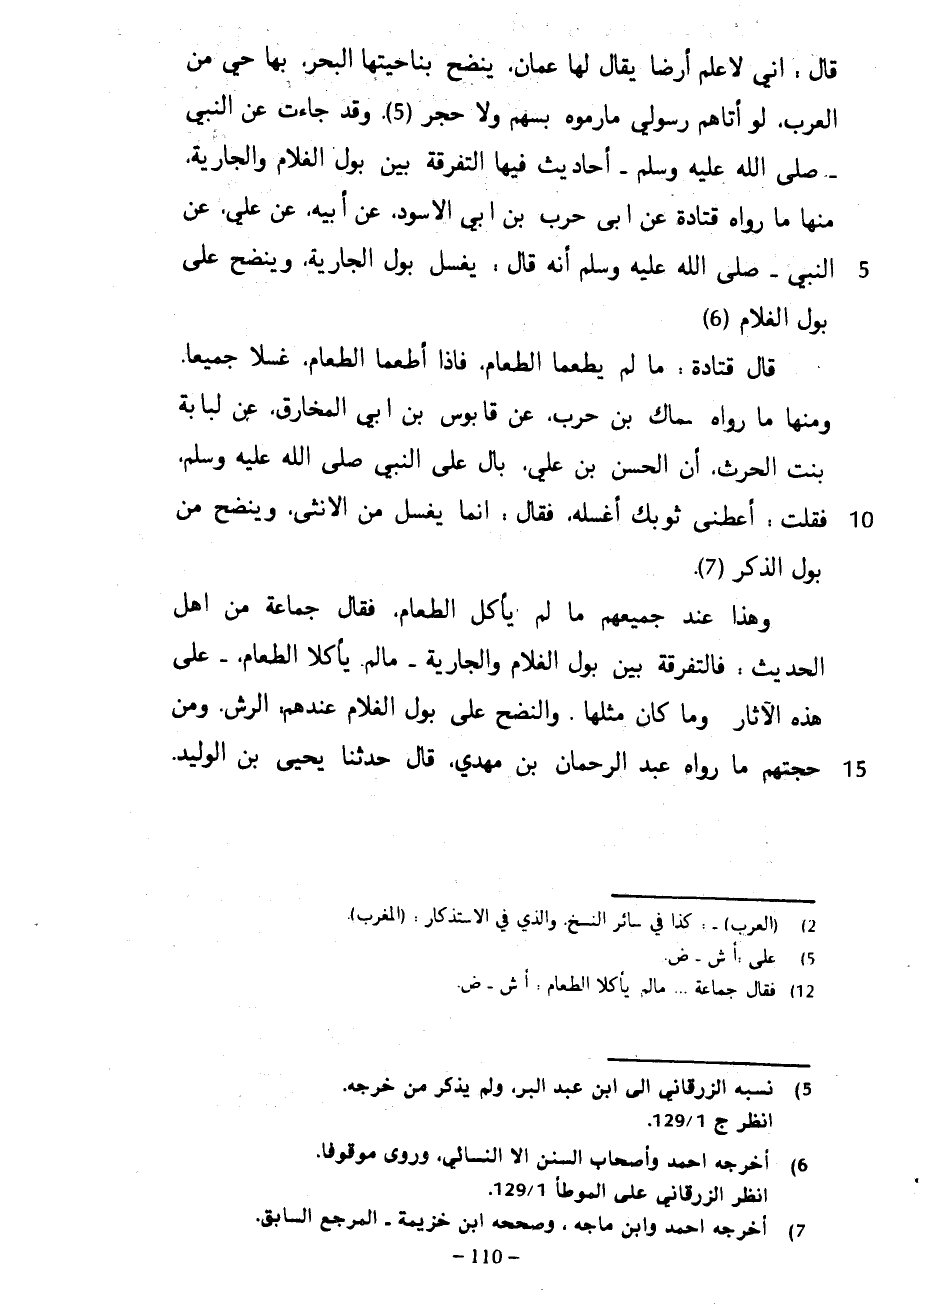 قال : اني لاعلم أرضا يقال لها عمان، ينضح بناحيتها البحر، بها حي من
العرب، لو أتاهم رسولي مارموه بسهم ولا حجر (5). وقد جاءت عن النبي
ـ صلى الله عليه وسلم ـ أحاديث فيها التفرقة بين بول الغلام والجارية،
منها ما رواه قتادة عن ابى حرب بن ابي الاسود، عن أبيه، عن علي، عن
5 النبي ـ صلى الله عليه وسلم أنه قال : يغسل بول الجارية، وينضح على
بول الغلام (6)
قال قتادة : ما لم يطعما الطعام، فاذا أطعما الطعام، غسلا جميعا.
ومنها ما رواه سماك بن حرب، عن قابوس بن ابي المخارق، عن لبابة
بنت الحرث، أن الحسن بن علي، بال على النبي صلى الله عليه وسلم،
10 فقلت : أعطنى ثوبك أغسله، فقال : انما يغسل من الانثى، وينضح من
بول الذكر (7).
وهذا عند جميعهم ما لم يأكل الطعام، فقال جماعة من اهل
الحديث : فالتفرقة بين بول الغلام والجارية ـ مالم يأكلا الطعام، ـ على
هذه الآثار وما كان مثلها . والنضح على بول الغلام عندهم، الرش. ومن
15 حجتهم ما رواه عبد الرحمان بن مهدي، قال حدثنا يحيى بن الوليد،
2) (العرب) ـ : كذا في سائر النسخ. والذي في الاستذكار : (المغرب).
5) على : أ ش ـ ض.
12) فقال جماعة ... مالم يأكلا الطعام : أ ش ـ ض.
5) نسبه الزرقاني الى ابن عبد البر، ولم يذكر من خرجه.
انظر ج 129/1.
6) أخرجه احمد وأصحاب السنن الا النسائي، وروى موقوفا.
انظر الزرقاني على الموطأ 129/1.
7) أخرجه احمد وابن ماجه ، وصححه ابن خزيمة ـ المرجع السابق.
– 110 –